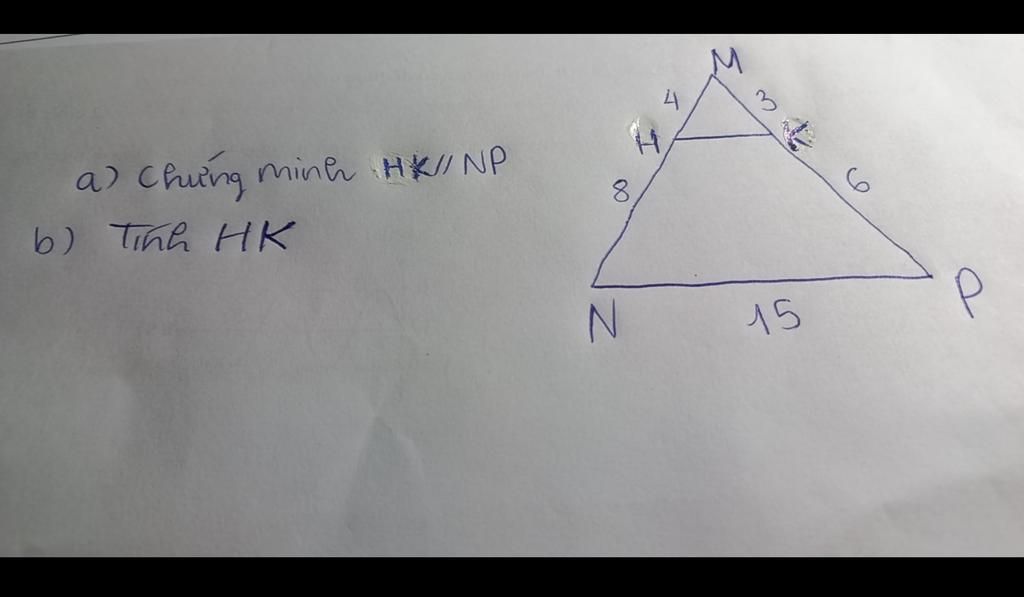 M
4
3
H
K
a) Chứng minh HK // NP
8
6
b) Tính HK
N
15
P